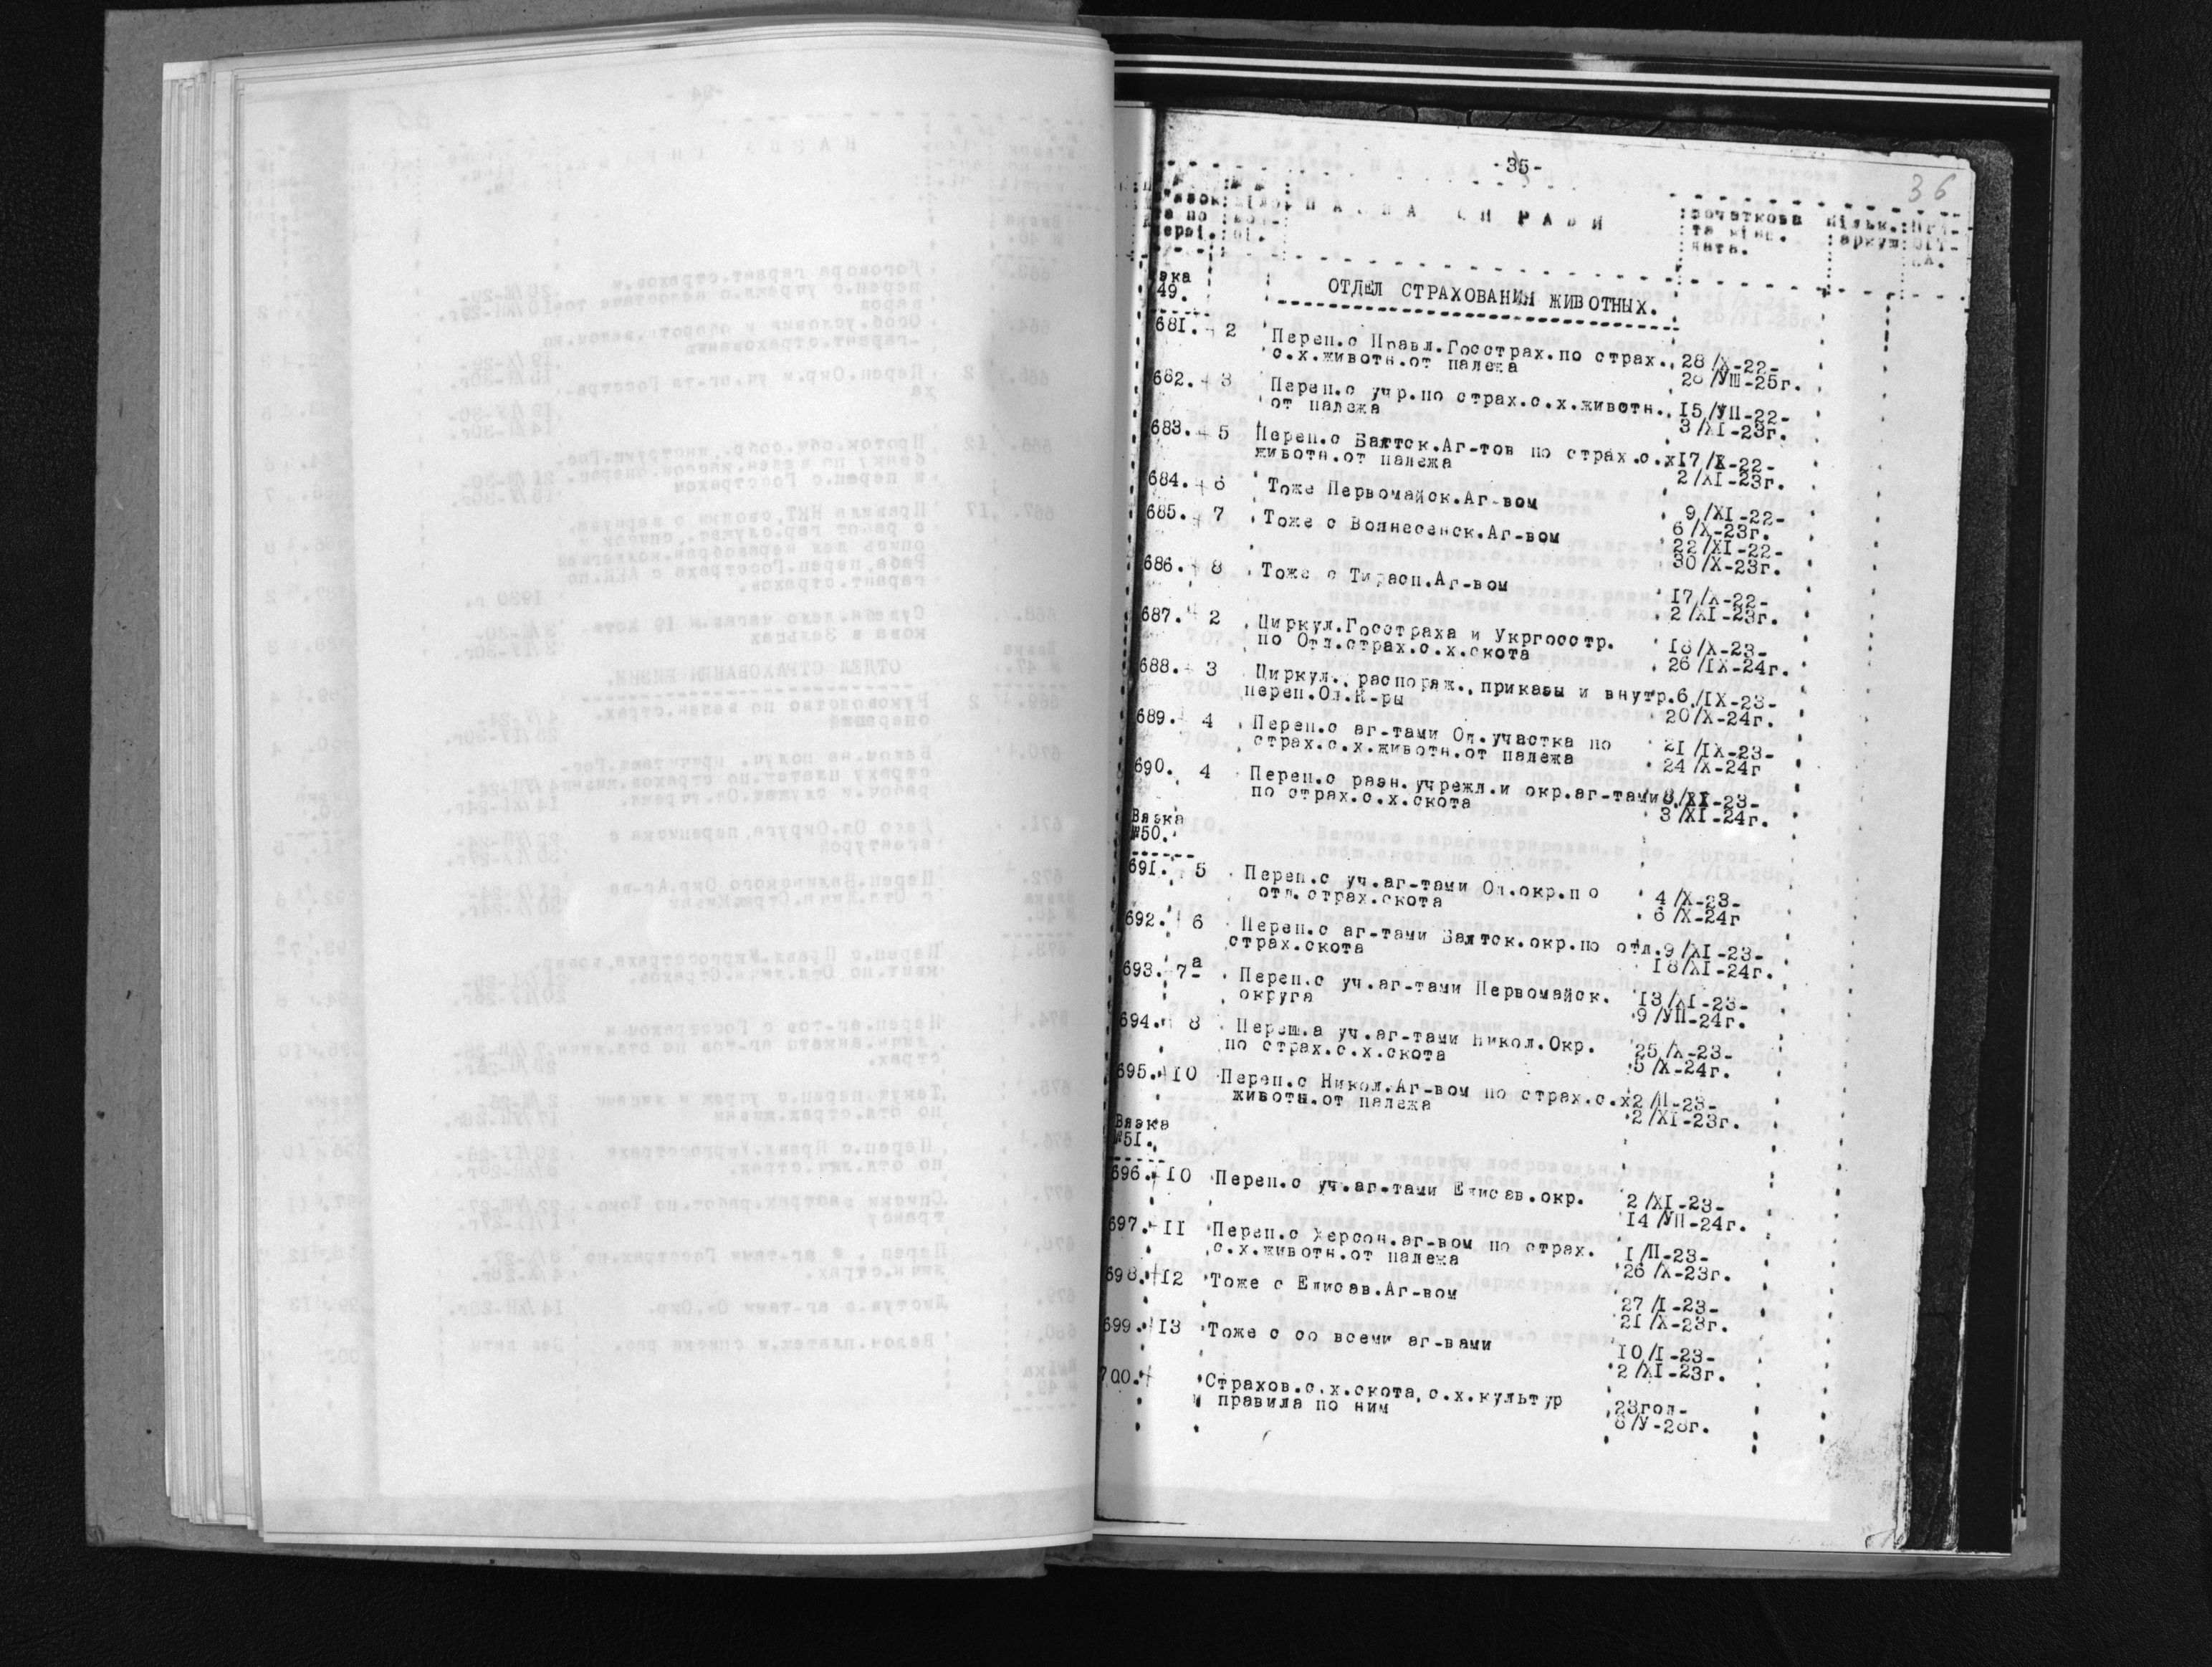 -35-
36
Н А З В А СПРАВИ
:початкова :кільк.:При-
та кінц. :аркуш:міт-
дата. ка.
Вязка
49.
ОТДЕЛ СТРАХОВАНИЯ ЖИВОТНЫХ.
681. + 2 Переп.с Правл.Госстрах.по страх. 28/X-22-
с.х.животн.от падежа 28/УШ-25г.
682. + 3 Переп.с учр.по страх.с.х.животн. 15/УП-22-
от падежа 3/XI-23г.
683. + 5 Переп.с Балтск.Аг-тов по страх.с.х 17/X-22-
животн.от падежа 2/XI-23г.
684. + 6 Тоже Первомайск.Аг-вом 9/XI-22-
6/X-23г.
685. + 7 Тоже с Вознесенск.Аг-вом 22/XI-22-
30/X-23г.
686. + 8 Тоже с Тирасп.Аг-вом 17/X-22-
2/XI-23г.
687. + 2 Циркул.Госстраха и Укргосстр. 18/X-23-
по Отд.страх.с.х.скота 26/IX-24г.
688. + 3 Циркул., распоряж., приказы и внутр. 6/IX-23-
переп.Од.К-ры 20/X-24г.
689. + 4 Переп.с аг-тами Од.участка по 21/IX-23-
страх.с.х.животн.от падежа 24/X-24г
690. 4 Переп.с разн.учрежд.и окр.аг-тами 8/XI-23-
по страх.с.х.скота 3/XI-24г.
Вязка
№50.
691. + 5 Переп.с уч.аг-тами Од.окр.по 4/X-23-
отд.страх.скота 6/X-24г
692. + 6 Переп.с аг-тами Балтск.окр.по отд. 9/XI-23-
страх.скота 18/XI-24г.
693. 7а Переп.с уч.аг-тами Первомайск. 13/XI-23-
округа 9/УП-24г.
694. + 8 Переп.а уч.аг-тами Никол.Окр. 25/X-23-
по страх.с.х.скота 5/X-24г.
695. + 10 Переп.с Никол.Аг-вом по страх.с.х 2/П-23-
животн.от падежа 2/XI-23г.
Вязка
№51.
696. + 10 Переп.с уч.аг-тами Елисав.окр. 2/XI-23-
14/УП-24г.
697. + 11 Переп.с Херсон.аг-вом по страх. 1/П-23-
с.х.животн.от падежа 26/X-23г.
698. + 12 Тоже с Елисав.Аг-вом 27/I-23-
21/X-23г.
699. + 13 Тоже с со всеми аг-вами 10/I-23-
2/XI-23г.
700. + Страхов.с.х.скота,с.х.культур 23год-
и правила по ним 8/У-28г.